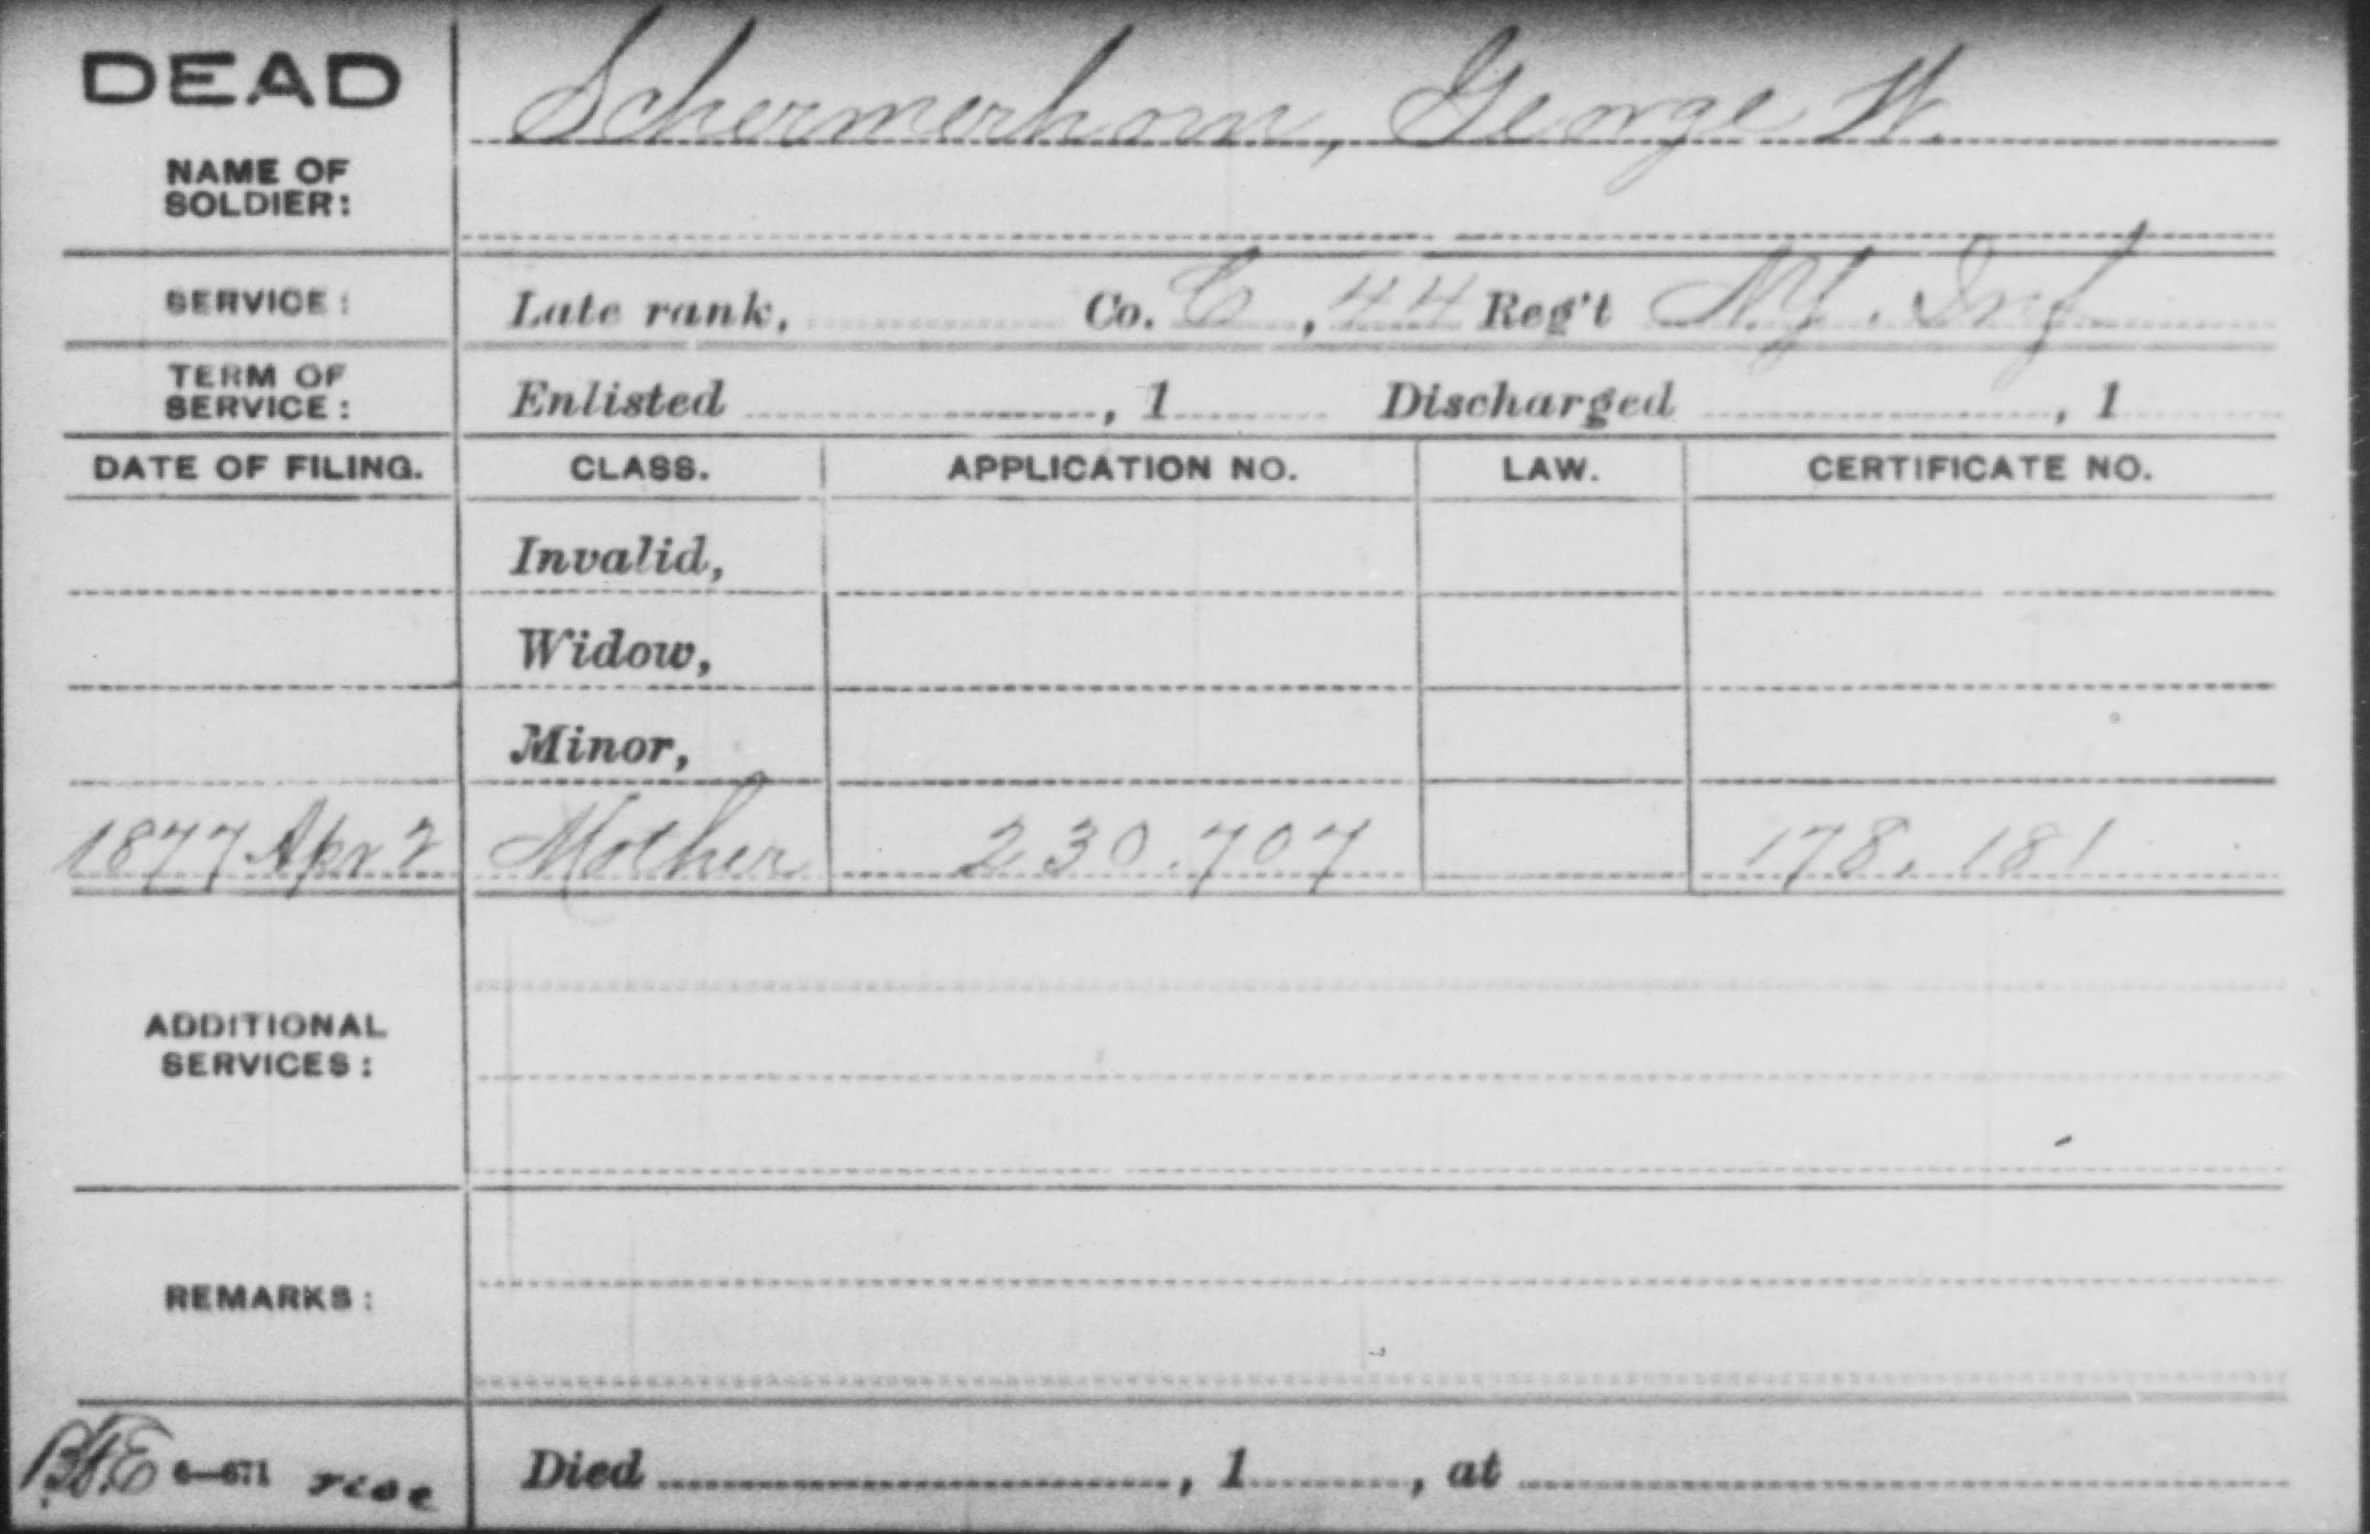 DEAD
Schermerhorn, George W.
NAME OF
SOLDIER:
SERVICE: Late rank, Co. C, 44 Reg't N.Y. Inf
TERM OF
SERVICE: Enlisted , 1 Discharged , 1
DATE OF FILING. CLASS. APPLICATION NO. LAW. CERTIFICATE NO.
Invalid,
Widow,
Minor,
1877 Apr 2 Mother 230.707 178.181
ADDITIONAL
SERVICES:
REMARKS:
6—671 Died , 1 , at